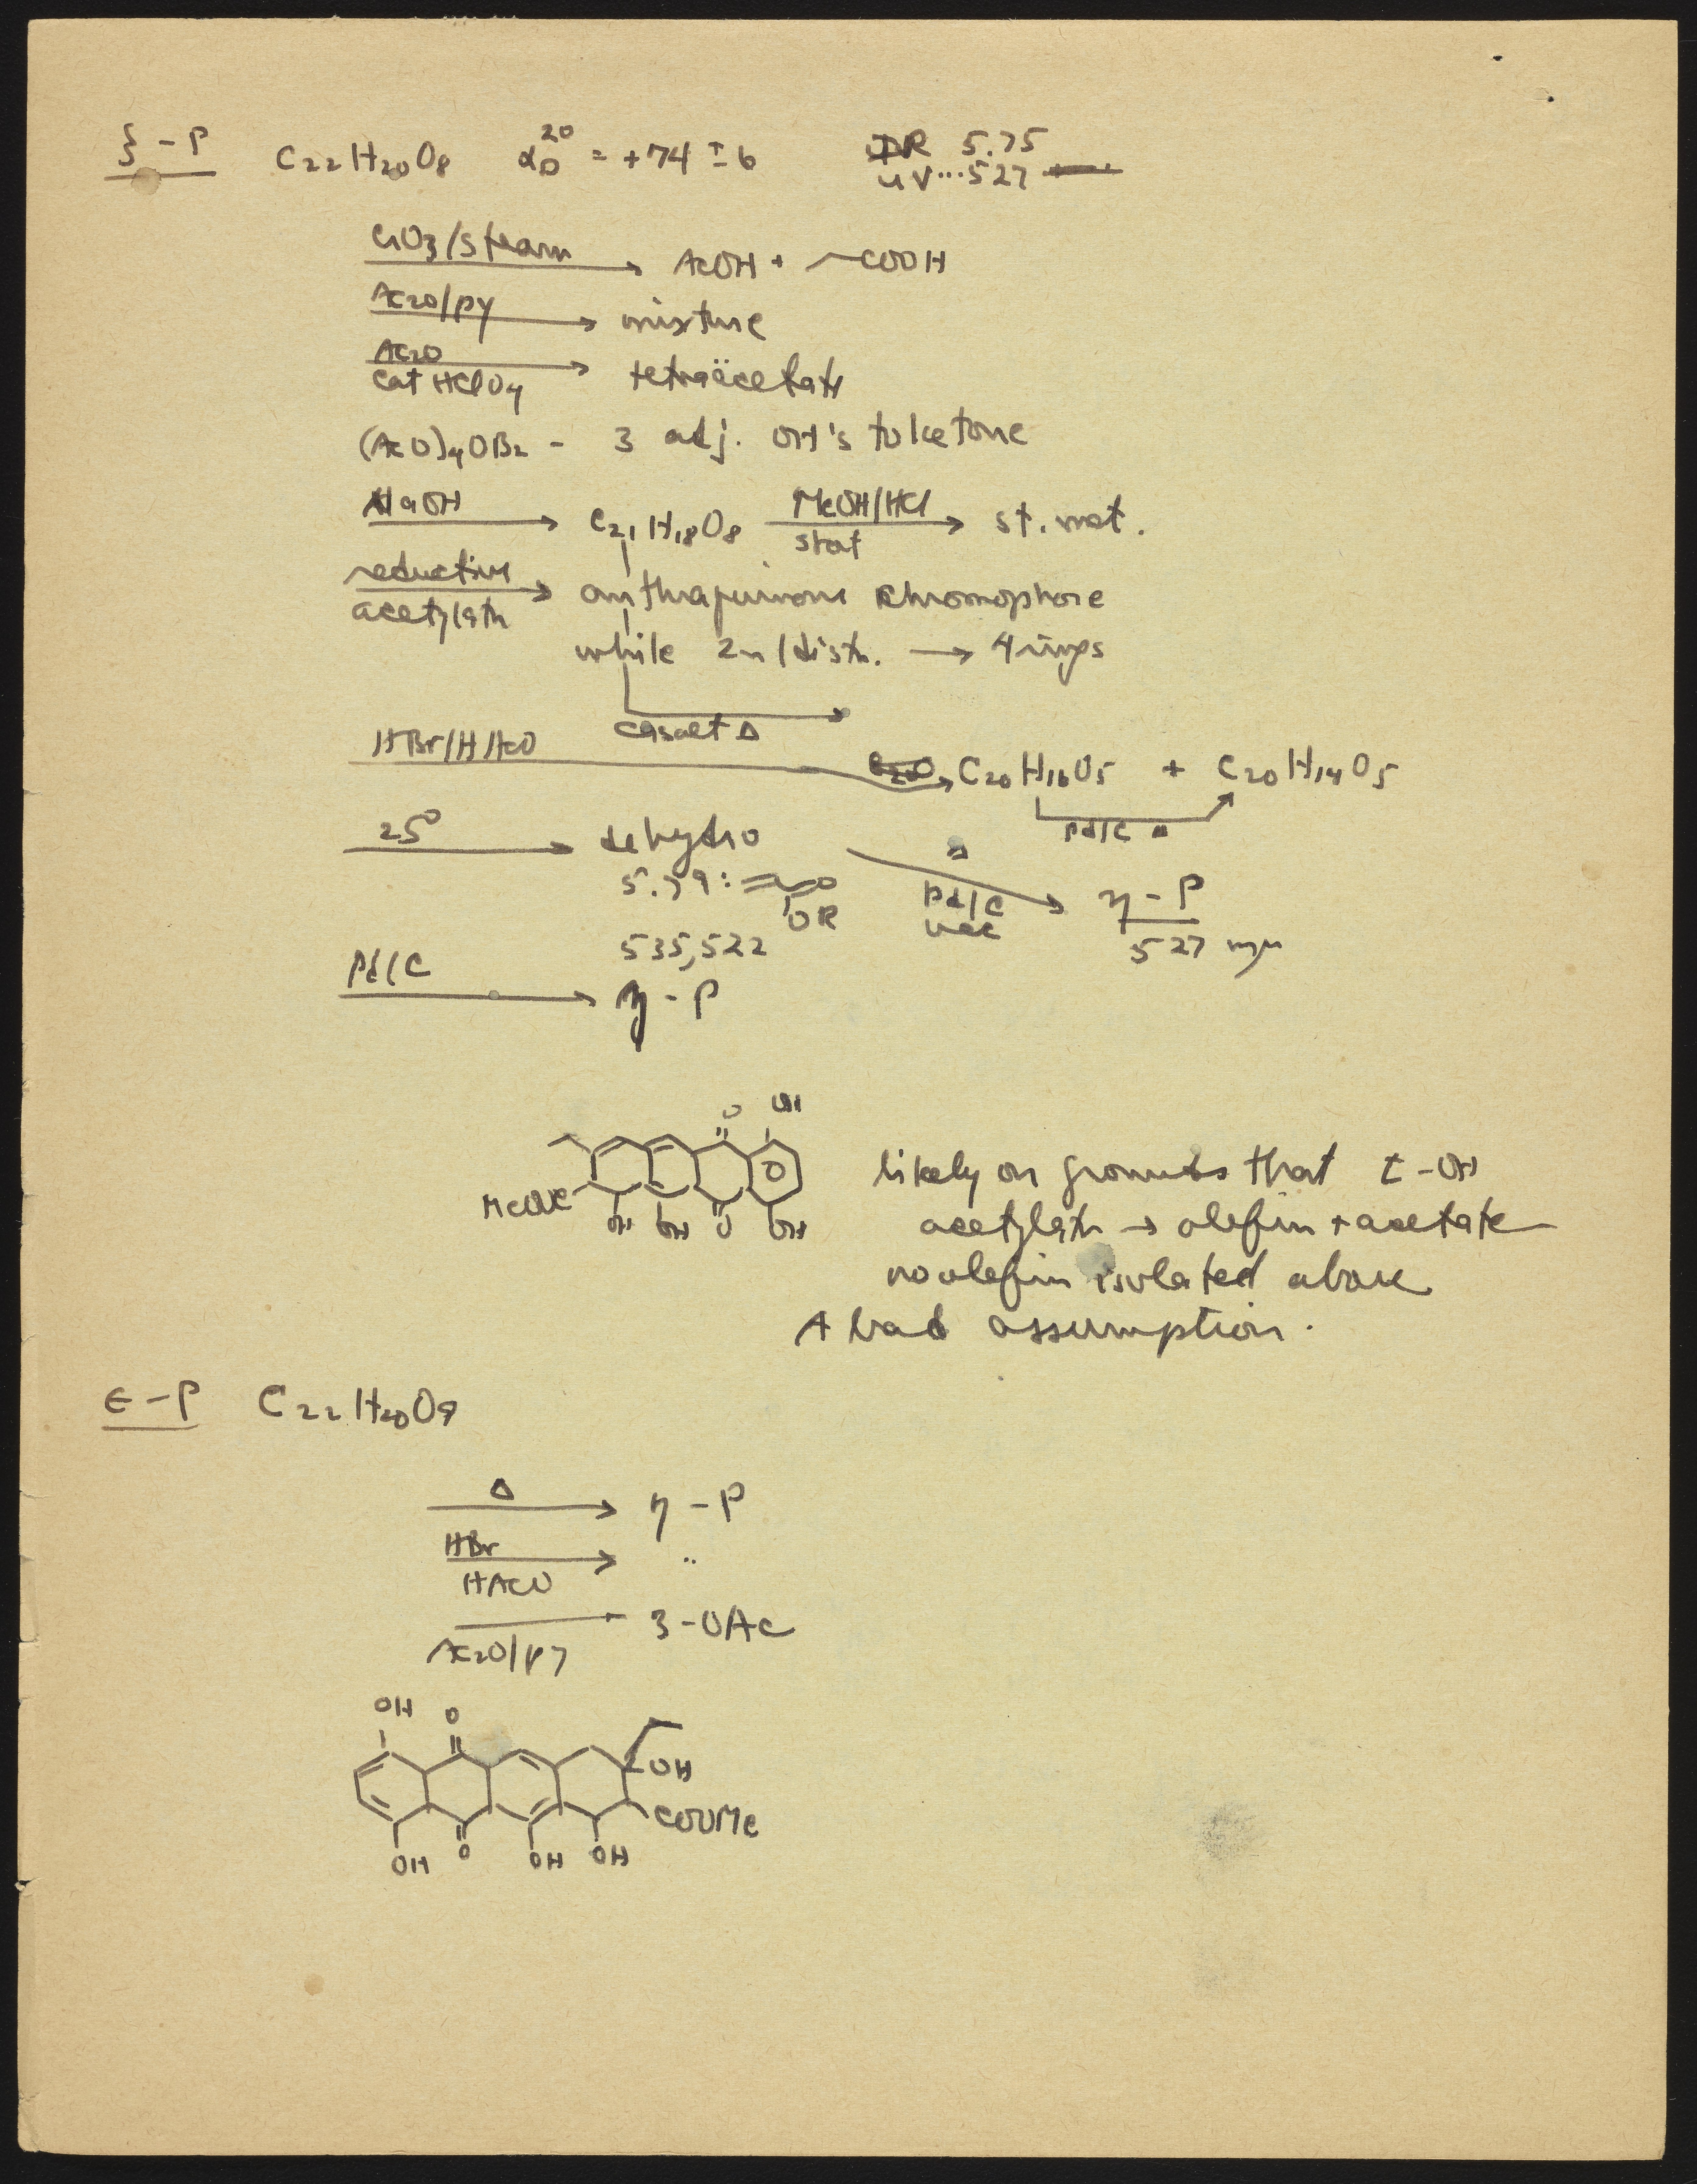 ξ-P C22H20O8 αD20 = +74 ± 6 IR 5.75
UV...527
CrO3/steam → AcOH + ⁀COOH
Ac2O/py → mixture
Ac2O
cat HClO4 → tetraäcetate
(AcO)4OB2 - 3 adj. OH's to ketone
NaOH → C21H18O8 MeOH/HCl → st. mat.
reductive
acetylatn → anthraquinone chromophore
while Zn/distn. → 4 rings
Δ
HBr/HAcO → C20H16O5 + C20H14O5
Pd/C Δ
25° → dehydro Δ
5.79: =O Pd/C → η-P
OR vac
535,522 527 mμ
Pd/C → η-P
O OH
MeOOC OH OH O OH
likely on grounds that t-OH
acetylatn → olefin + acetate
no olefin isolated above
A bad assumption.
ε-P C22H20O9
Δ → η-P
HBr → "
HAcO
→ 3-OAc
Ac2O/py
OH O
OH
COOMe
OH O OH OH